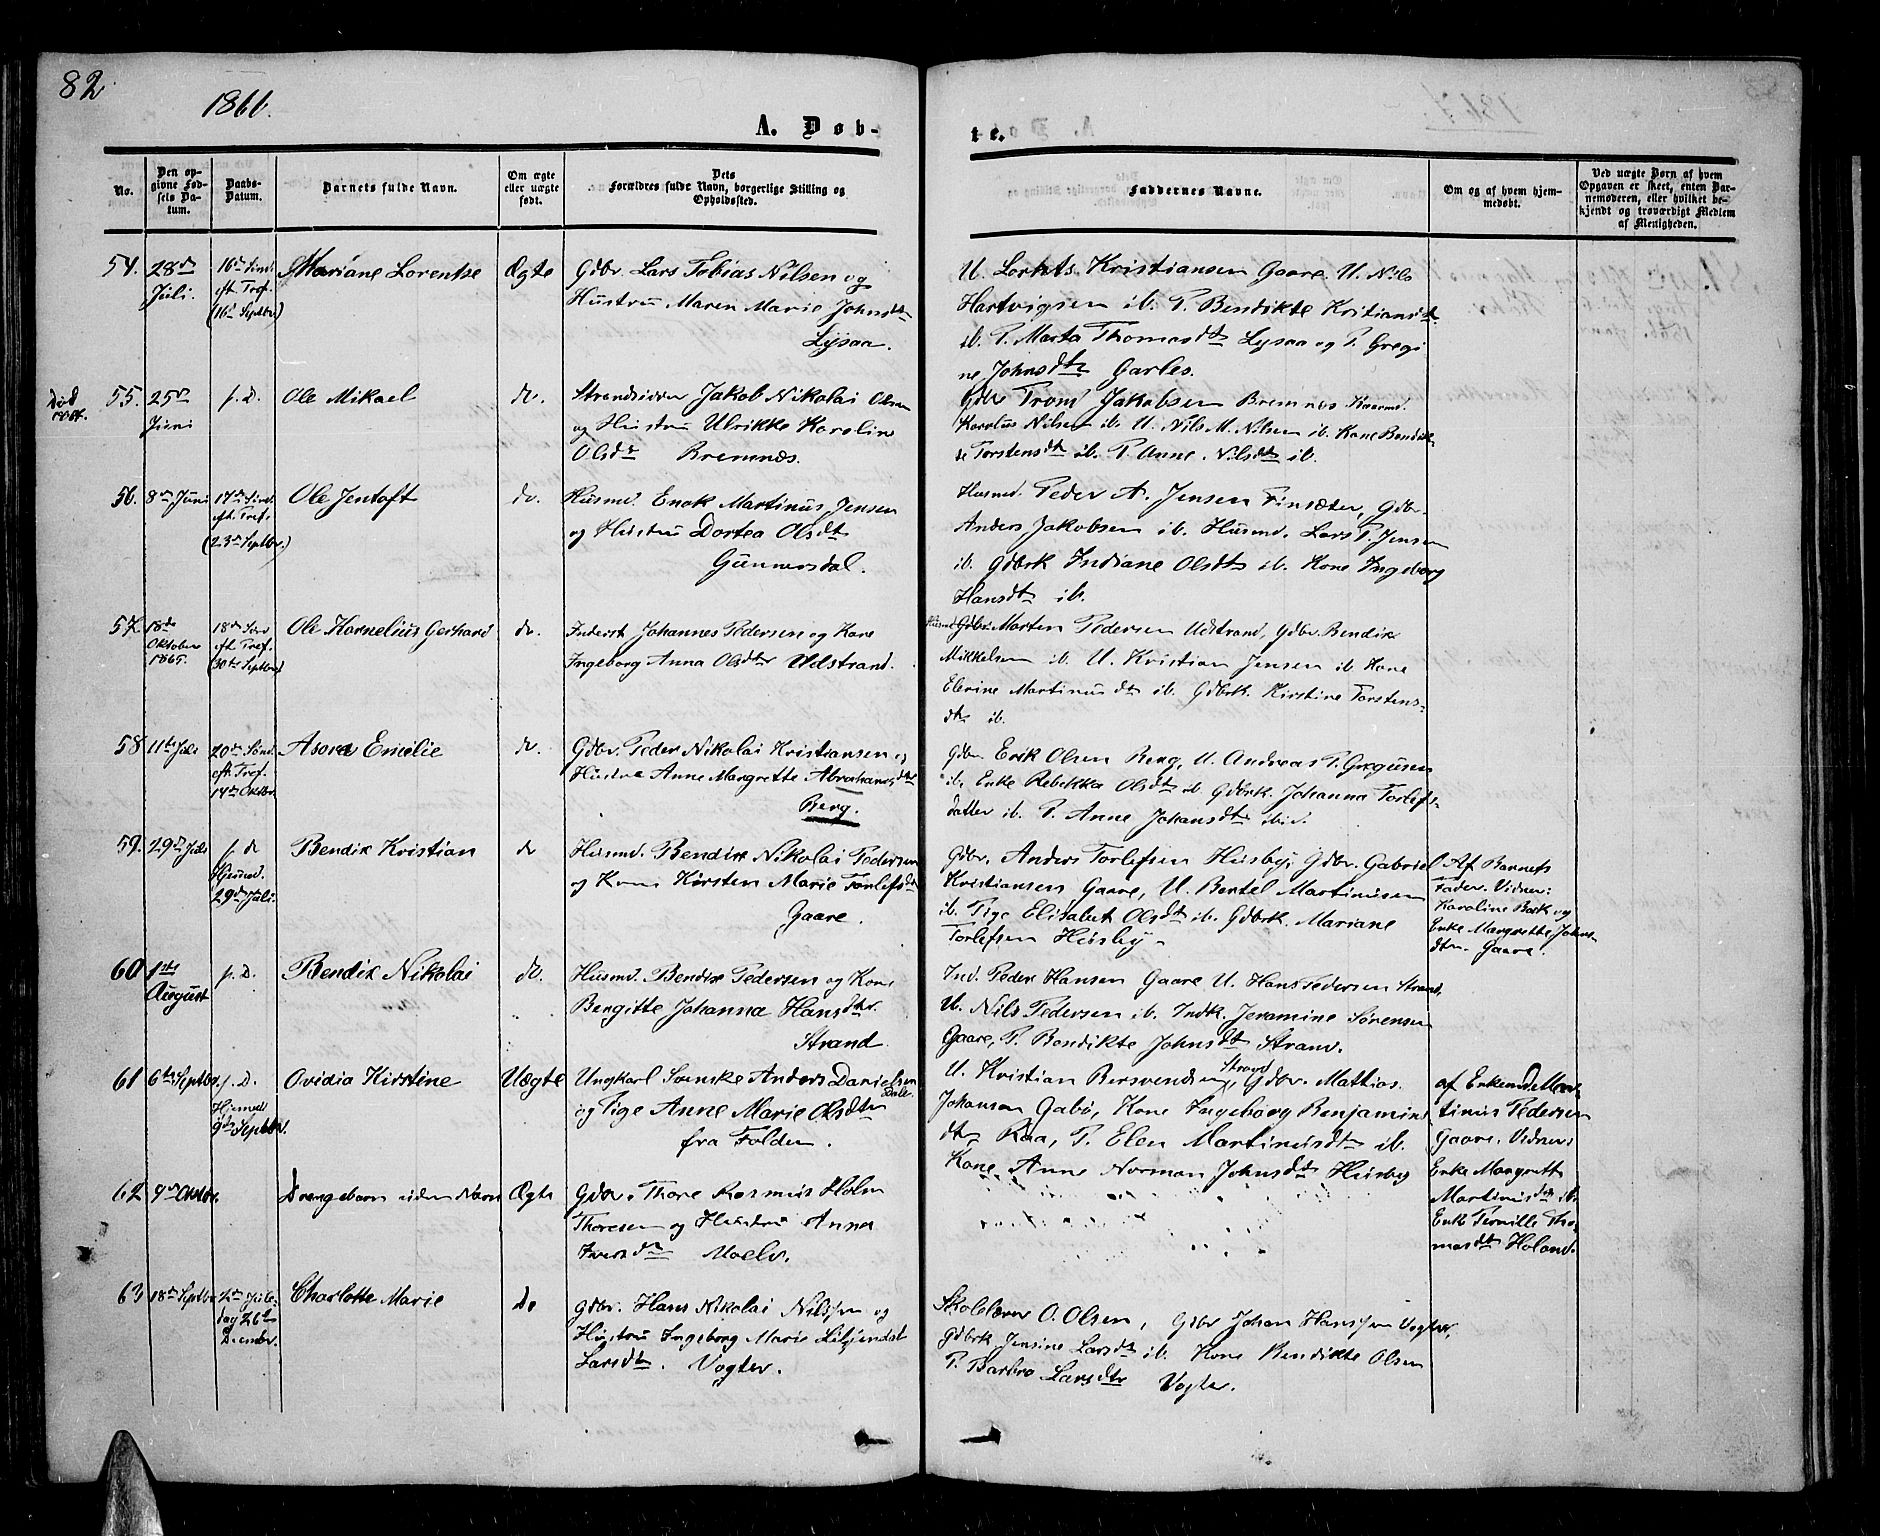 82
1866.
A. Døb-
te.
No.
Den op-
givne Fød-
sels Da-
tum.
Daabs-
Datum.
Barnets fulde Navn.
Om ægte
eller uægte
født.
Dets
Forældres fulde Navn, borgerlige Stilling og
Opholdssted.
Faddernes Navne.
Om og af hvem hjem-
medøbt.
Ved uægte Børn af hvem
Opgaven er skeet, enten Bar-
nemoderen, eller hvilket be-
kjendt og troværdigt Medlem
af Menigheden.
54.
28de
Juli.
16de Sønd.
eft. Tref.
(16de Septbr)
Mariane Lorentze
Ægte
Gdbr. Lars Tobias Nilsen og
Hustru Maren Marie Johnsdtr
Lysaa.
U. Lorents Kristiansen Gaare. U. Nils
Hartvigsen ib. P. Bendikte Kristiansdtr
ib. P. Marta Thomasdtr Lysaa og P. Gregi
ne Johnsdtr Garles.
Død
55.
25de
Juni
s. D.
Ole Mikael
do.
Strandsidder Jakob Nikolai Olsen
og Hustru Ulrikke Karoline
Olsdtr Bremnes.
Gdbr Trond Jakobsen Bremnes
Karolus Nilsen ib. U. Nils M. Nilsen ib. Kone Bendik
te Torstensdtr ib. P. Anne Nilsdtr ib.
56.
8de Juni
17de Sønd.
eft. Tref.
(23de Septbr.)
Ole Jentoft
do.
Husmd. Enok Martinus Jensen
og Hustru Dortea Olsdtr
Gunnersdal.
Husmd. Peder A. Jensen Finsæter, Gdbr.
Anders Jakobsen ib. Husmd. Lars P. Jensen
ib. Gdbrk Indiane Olsdtr ib. Kone Ingeborg
Hansdtr ib.
57.
18de
Oktober
1865.
18de Sønd
eft. Tref.
(30te Septbr)
Ole Kornelius Gerhard
do.
Inderst Johannes Pedersen og Kone
Ingeborg Anna Olsdtr Udstrand.
Husmd Gdbr. Morten Pedersen Udstrand, Gdbr. Bendik
Mikkelsen ib. U. Kristian Jensen ib. Kone
Elerine Martinusdtr ib. Gdbrk. Kirstine Torstens-
dtr ib.
58
11te Juli
20de Sønd.
eft. Tref.
14de Oktbr.
Asora Emilie
do.
Gdbr. Peder Nikolai Kristiansen og
Hustru Anne Margrette Abrahamsdtr
Berg.
Gdbr Erik Olsen Berg, U. Andreas P. Gregusen
ib. Enke Rebekka Olsdtr ib. Gdbrk. Johanna Torlefs-
datter ib. P. Anne Johansdtr ibid.
59.
29de Juli
s. D.
Hjemmed.
29de Juli.
Bendik Kristian
do
Husmd. Bendik Nikolai Pedersen
og Kone Kirsten Marie Torlefsdtr
Gaare.
Gdbr. Anders Torlefsen Husby, Gdbr. Gabriel
Kristiansen Gaare, U. Bertel Martinusen
ib. Pige Elisabet Olsdtr ib. Gdbrk. Mariane
Torlefsen Husby.
Af Barnets
Fader. Vidner:
Karoline Bork og
Enke Margrette Johns-
dtr Gaare.
60
1ste
August
s. D.
Bendik Nikolai
do.
Husmd. Bendik Pedersen og Kone
Bergitte Johanna Hansdtr.
Strand.
Ind. Peder Hansen Gaare U. Hans Pedersen Strand,
U. Nils Pedersen ib. Indk. Jeramine Sørensen
Gaare, P. Bendikte Johnsdtr Strand.
61
6te Septbr.
s. D.
Hjemmed
9de Septbr.
Ovidia Kirstine
Uægte
Ungkarl Svenske Anders Danielsen
Dale
og Pige Anne Marie Olsdtr
fra Folden.
U. Kristian Bersvendsen Strand, Gdbr. Mathias
Johansen Gabø, Kone Ingeborg Benjamins
dtr Raa, P. Elen Martinusdtr ib.
Kone Anne Norman Johnsdtr Husby
af Enkemd. Mar-
tinus Pedersen
Gaare. Vidner:
Enke Margrett
Martinusdtr ib.
Enke Pernille Tho-
masdtr Holand.
62
9de Oktbr.
Drengebarn uden Navn
Ægte
Gdbr. Thore Rasmus Holm
Thoresen og Hustru Anna
Iversdtr Moelv.
63
18de Septbr
2den Jule-
dag 26de
December.
Charlotte Marie
Do
Gdbr. Hans Nikolai Nilssen og
Hustru Ingeborg Marie Liljendal
Larsdtr. Vogter.
Skolelærer O. Olsen, Gdbr Johan Hanssen Vogter,
Gdbrk Jensine Larsdtr ib. Kone Bendikte Olsen
P. Barbro Larsdtr Vogter.